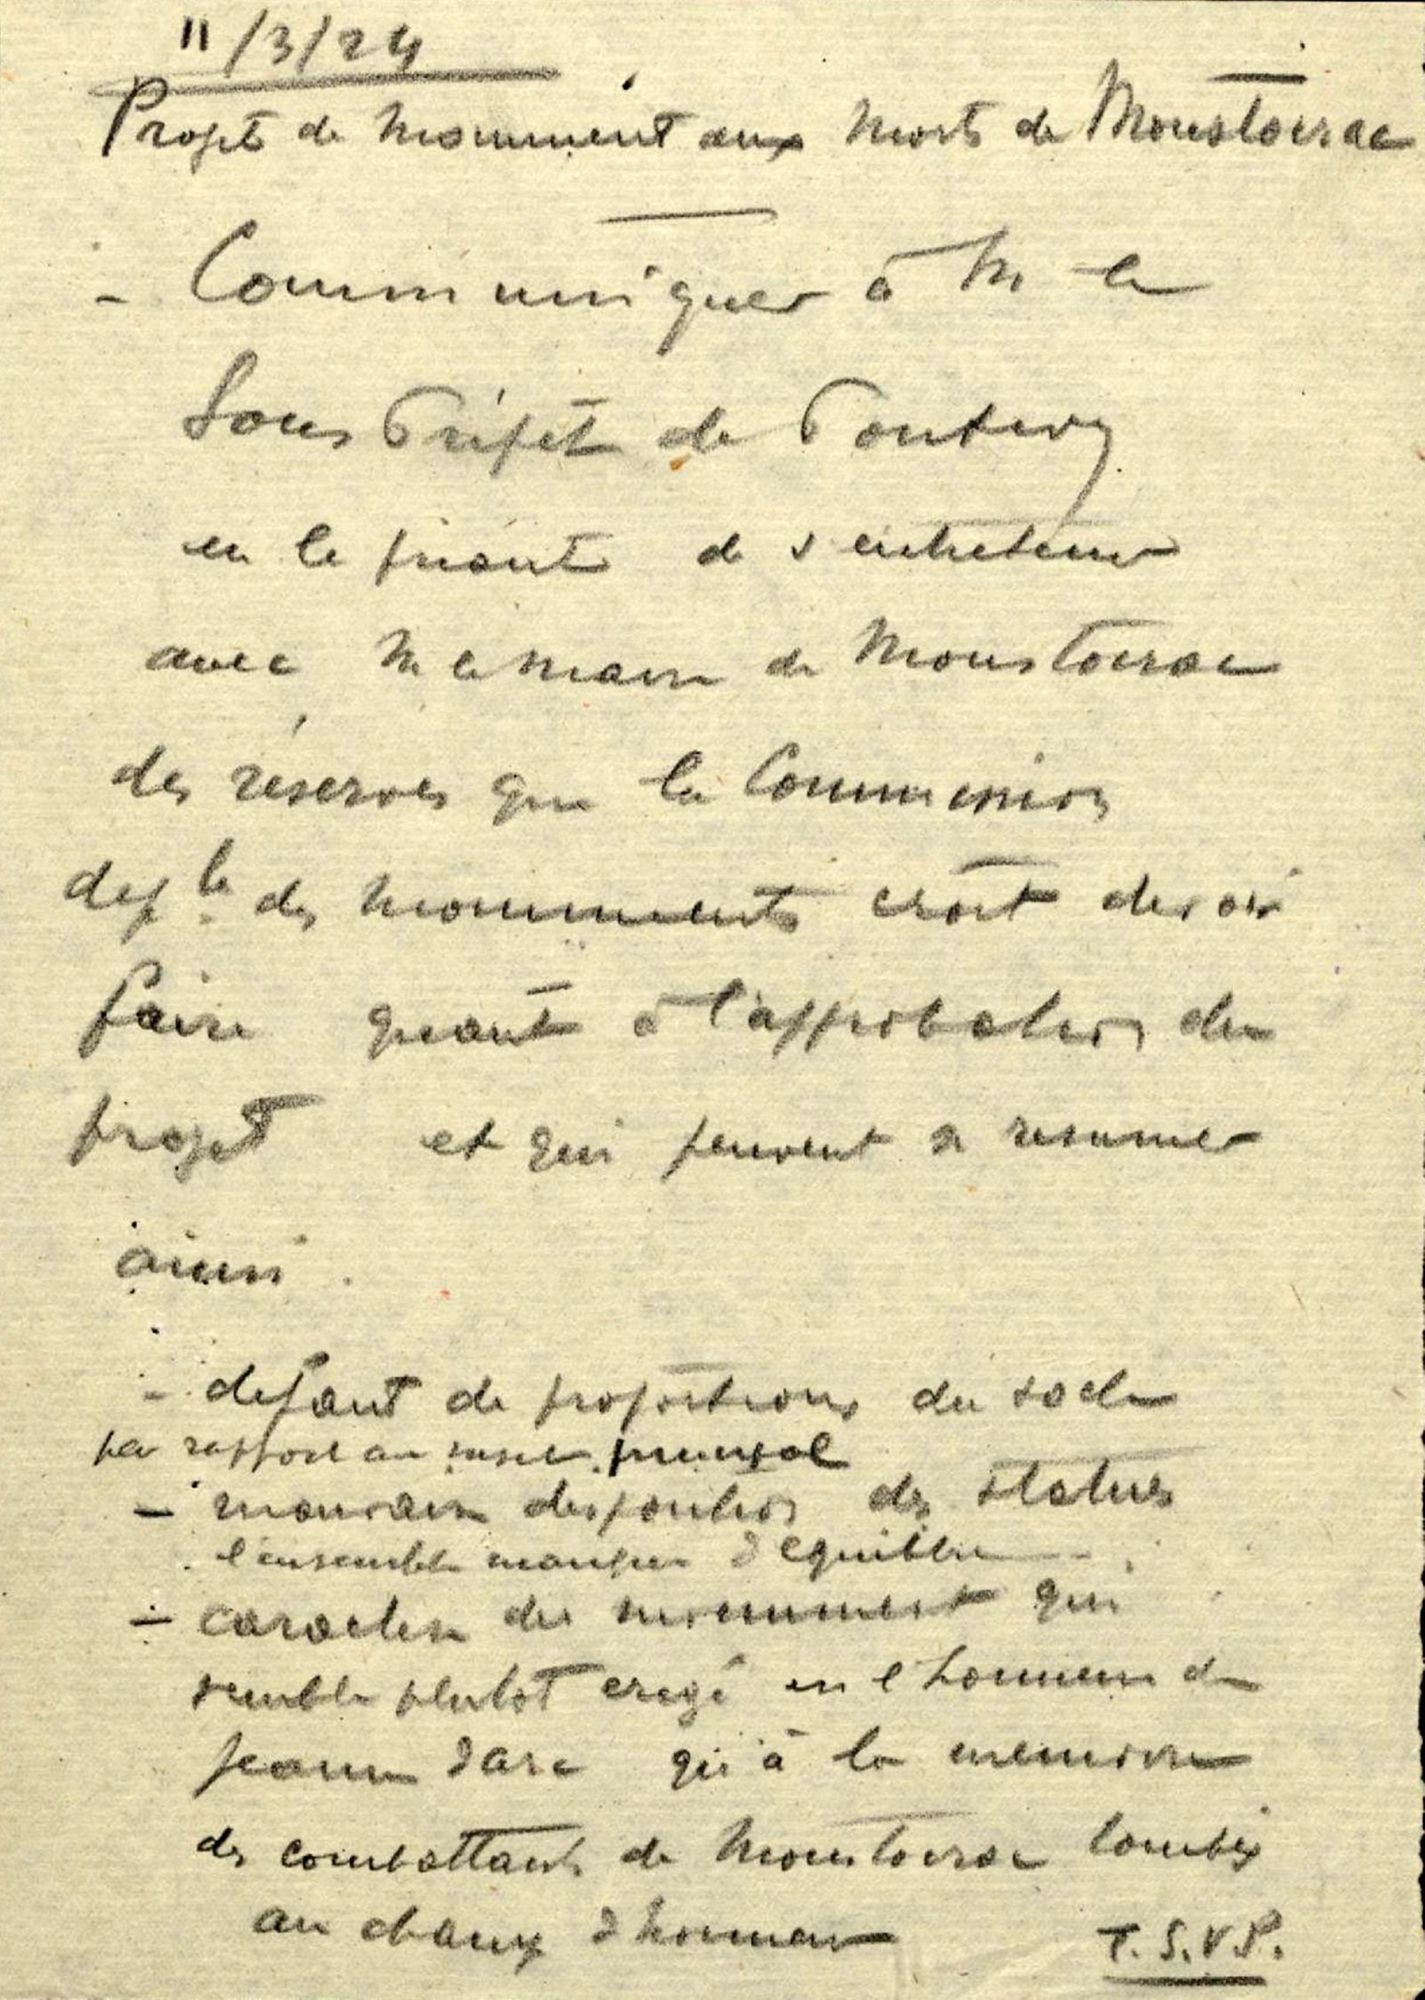 11/3/24
Projet de Monument aux Morts de Moustoirac
- Communiquer à M le
Sous Préfet de Pontivy
en le priant de s'entretenir
avec M le Maire de Moustoirac
des réserves que la Commission
deple des monuments croit devoir
faire quant à l'approbation du
projet et qui peuvent se resumer
ainsi.
- defaut de proportions du socle
par rapport au sujet principal
- mauvaise disposition des statues
l'ensemble manque d'equilibre
- caractere du monument qui
semble plutot erigé en l'honneur de
Jeanne d'arc qu'à la memoire
des combattants de Moustoirac tombés
au champ d'honneur
T.S.V.P.